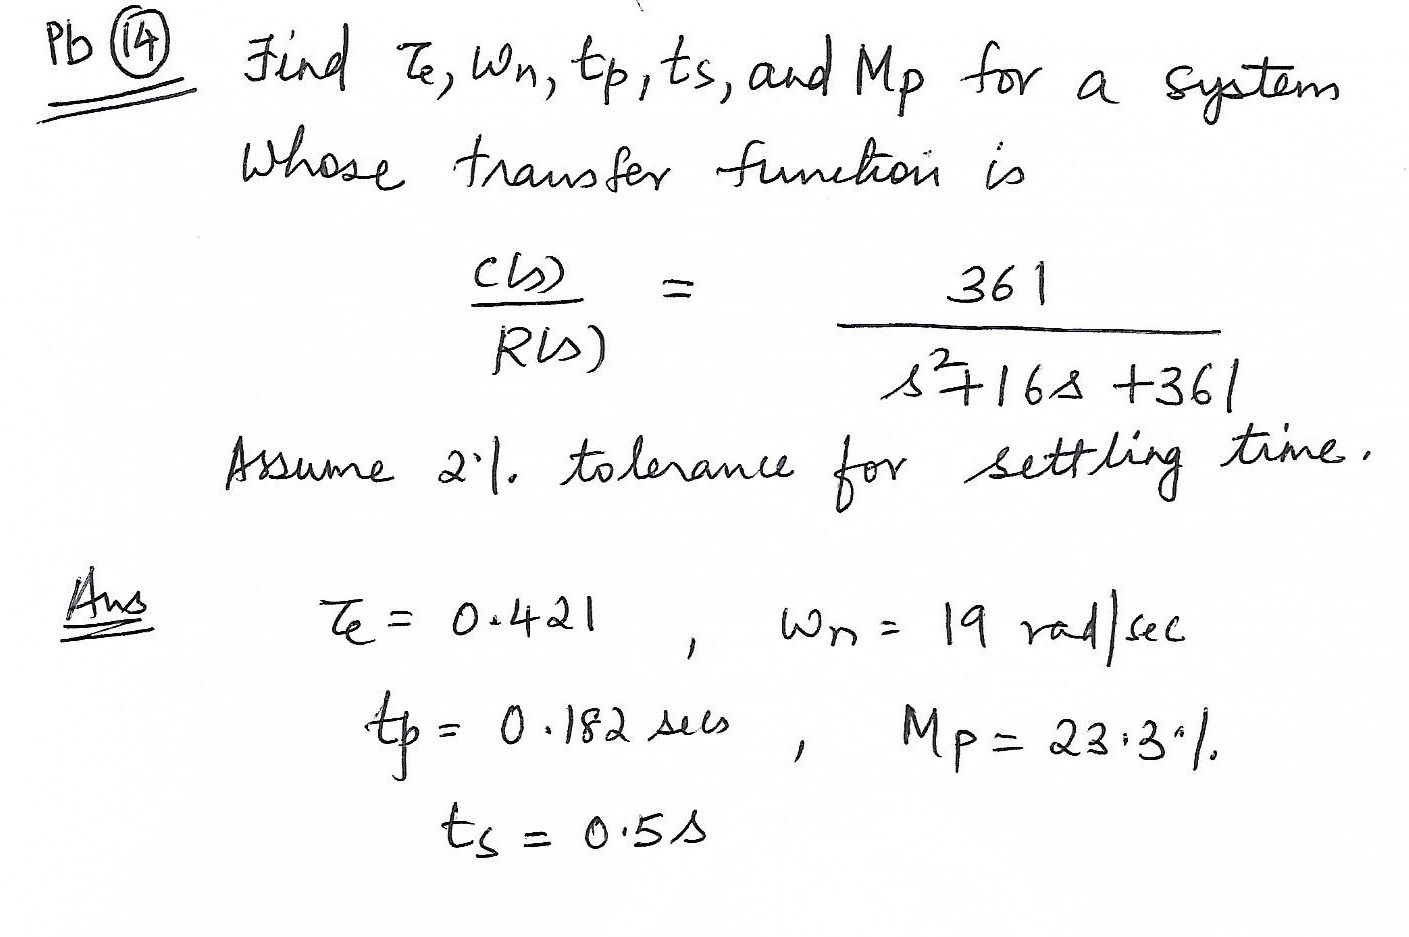 Pb 14 Find τe, ωn, tp, ts, and Mp for a system
whose transfer function is
C(s)/R(s) = 361/(s²+16s+361)
Assume 2% tolerance for settling time.
Ans τe = 0.421, ωn = 19 rad/sec
tp = 0.182 secs, Mp = 23.3%
ts = 0.5s